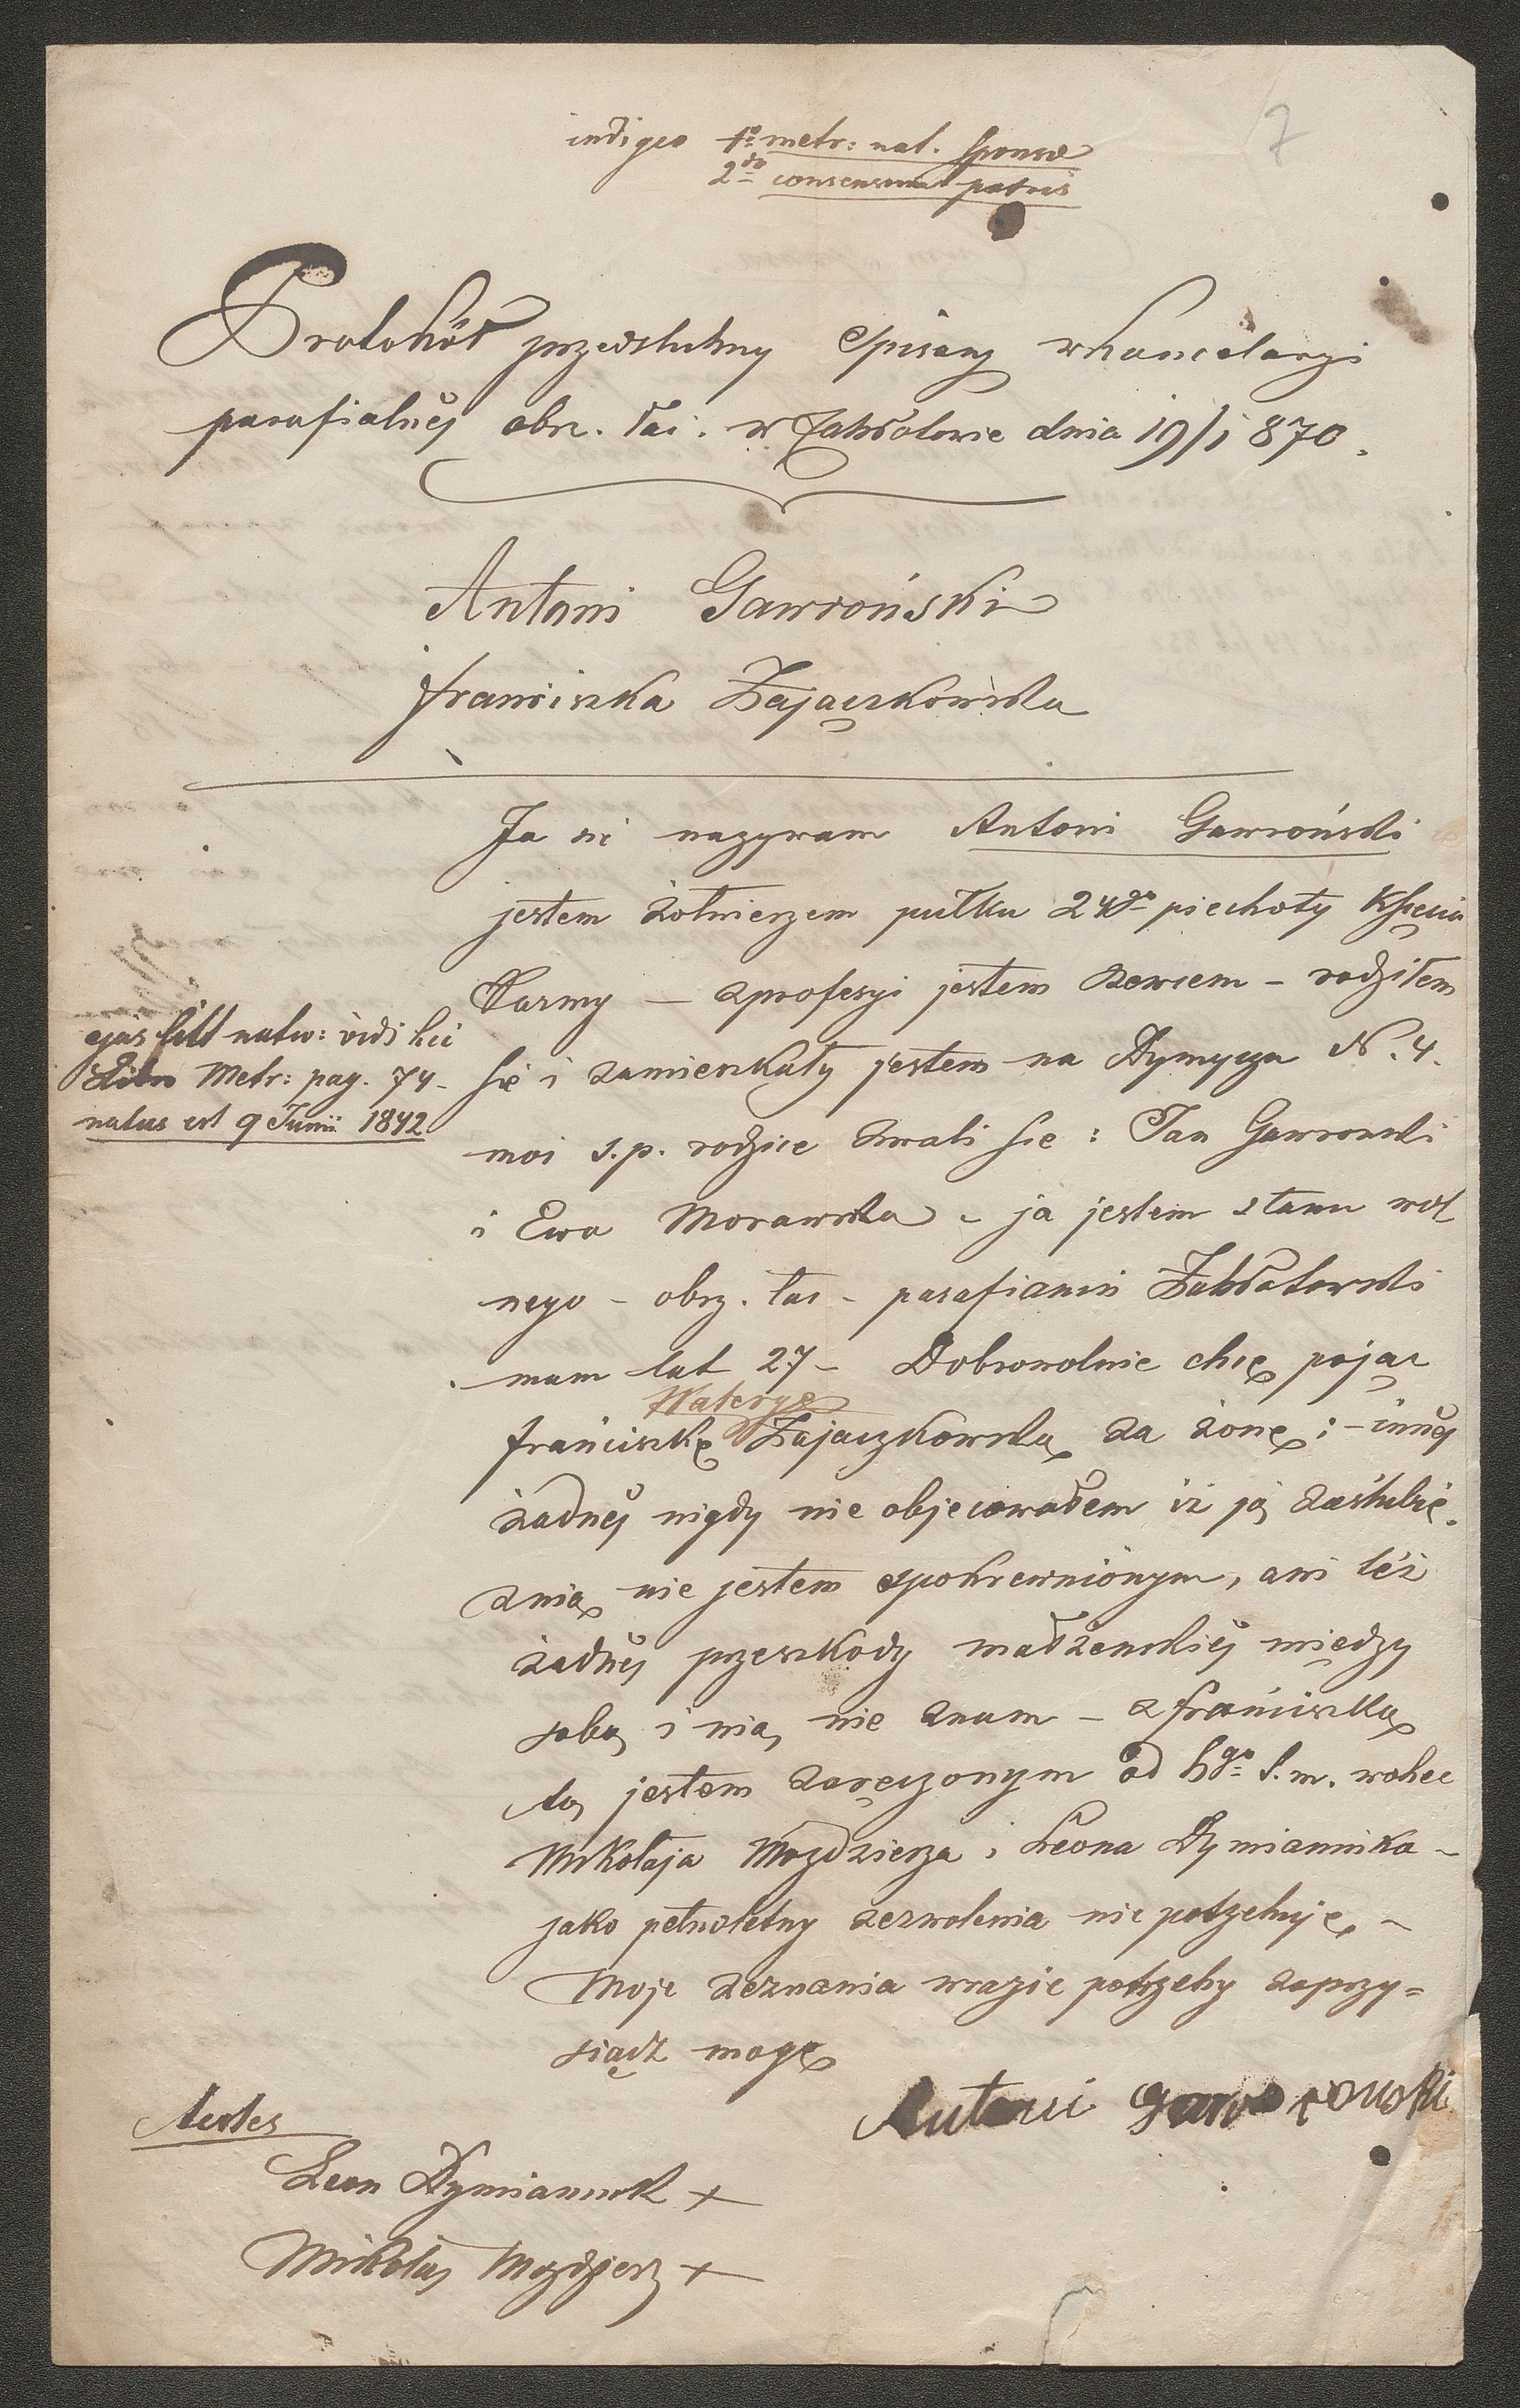 7
indigeo 1º metr: nat. sponsæ
2do consensum patris
Protokół przedślubny spisany w kancelaryi
parafialnéj obrz. łac. w Zabłotowie dnia 19/1 870.
Antoni Gawroński
Franciszka Zajączkowska
Ja się nazywam Antoni Gawroński
jestem żołnierzem pułku 24go piechoty Księcia
Parmy — z profesyi jestem szewcem — rodziłem
się i zamieszkały jestem na Dymycza N. 4.
moi s.p. rodzice zwali się: Jan Gawronski
i Ewa Morawska – ja jestem stanu wol
nego – obrz. łac – parafianin Zabłotowski
mam lat 27 – Dobrowolnie chcę pojąc
Franciszkę Zajaczkowską za żonę: – innéj
żadnéj nigdy nie objecowałem iż ją zaślubię.
z nią nie jestem spokrewniónym, ani też
żadnéj przeszkody małżenskiéj między
sobą i nią nie znam – z Franciszką
tą jestem zaręczonym od 6go b.m. wobec
Mikołaja Mozdzierza i Leona Dymiannika –
jako pełnoletny zezwolenia nie potrzebuję –
Moje zeznania w razie potrzeby zaprzy=
siądz mogę
Antoni Gawronski
ejus litt nativ: vidi hic
Libro Metr: pag. 74 –
natus est 9 Junii 1842
Testes
Leon Dymiannik +
Mikołaj Mozdzierz +